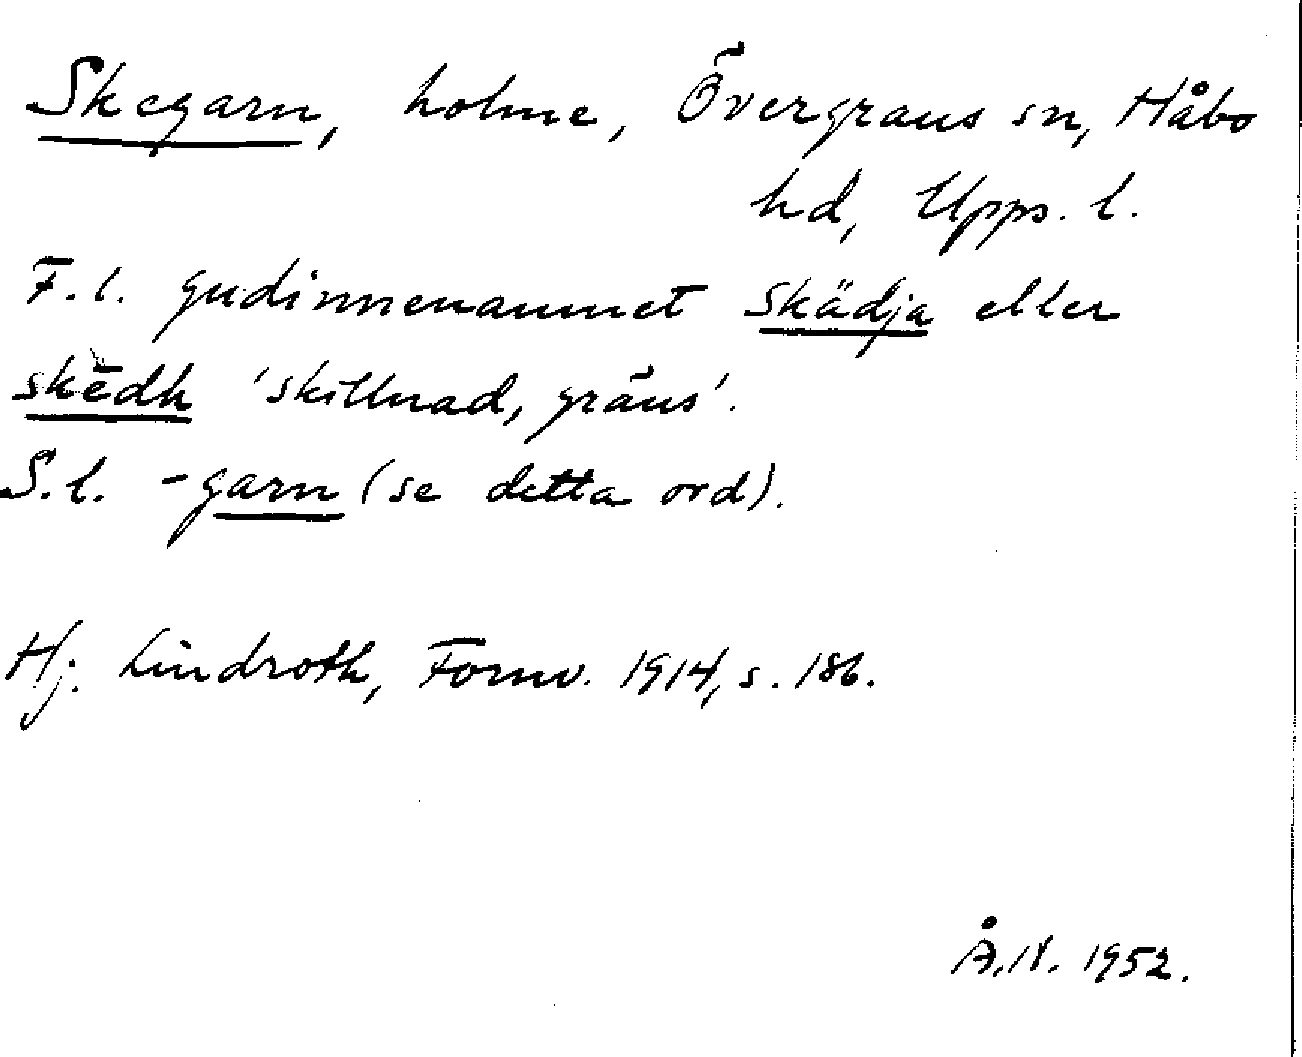 Skegarn, holme, Övergrans sn, Håbo
hd, Upps. l.
F.l. gudinnenamnet Skädja eller
skēdh 'skillnad, gräns'.
S.l. -garn (se detta ord).
Hj. Lindroth, Fornv. 1914, s. 186.
Å.N. 1952.